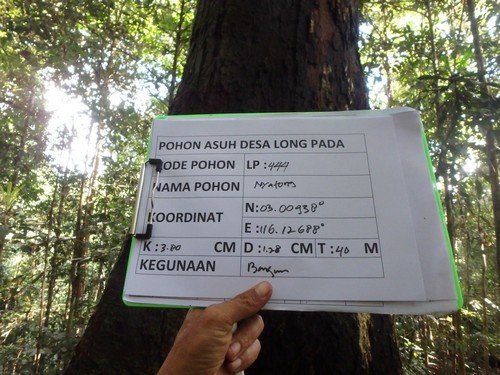 POHON ASUH DESA LONG PADA
KODE POHON LP : 444
NAMA POHON Nyatoh
KOORDINAT N : 03.00938°
E : 116.12688°
K : 3.80 CM D : 1.28 CM T : 40 M
KEGUNAAN Bangun